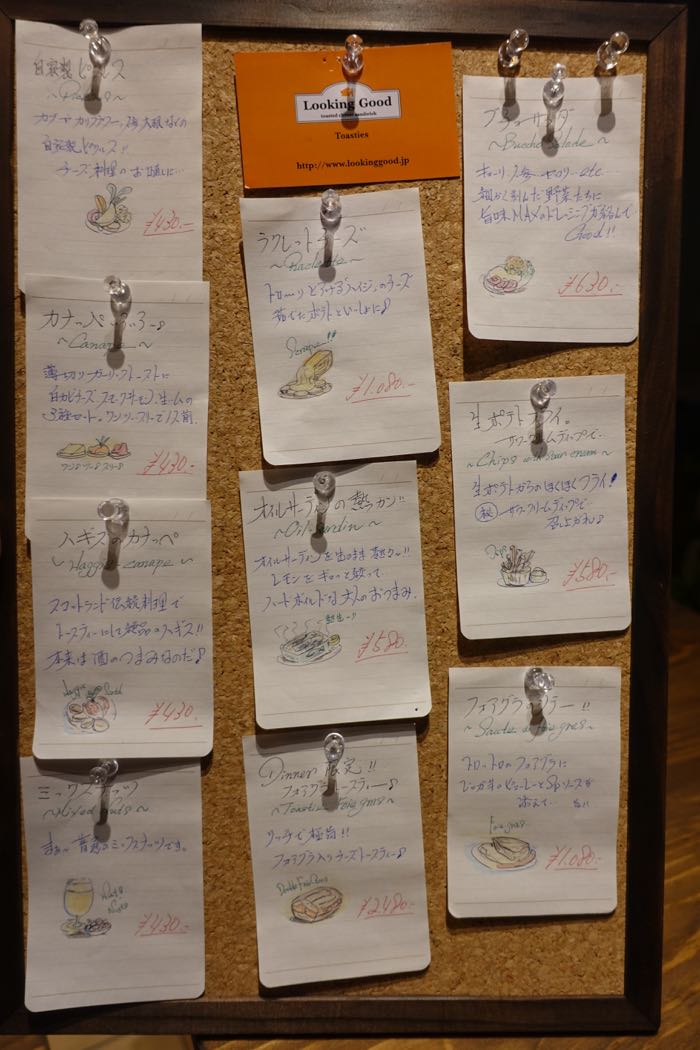 自家製ピクルス
カブ カリフラワー
自家製ピクルス!!
チーズ料理のお口直しに…
¥430.-
カナッペ
~Canape~
薄切りガーリックトーストに
白カビチーズ スモークサーモン、生ハムの
3種セット。ワンツースリーで1人前.
ワン♪ツー♪スリー♪
¥430.-
ハギスのカナッペ
Haggis canape
スコットランド伝統料理で
トースティーにして絶品のハギス!!
本来は酒のつまみなのだ♪
¥430.-
ミックスナッツ
~Mixed Nuts~
まぁ… 普通のミックスナッツです。
¥430.-
Looking Good
toasted cheese sandwich
Toasties
http://www.lookinggood.jp
ラクレットチーズ
~Raclette~
トローリととけるハイジのチーズ
茹でたポテトといっしょに♪
¥1.080.-
オイルサーディンの熱カン!!
~Oil sardin~
オイルサーディンを缶のまま熱々!!
レモンをギュッと絞って
ハードボイルドな大人のおつまみ.
¥580.-
Dinner限定!!
フォアグラトースティー♪
~Toastie Foie gras~
リッチで極旨!!
フォアグラ入りチーズトースティー♪
Double Foie Gras
¥2.480.-
ブッチョサラダ
~Buccho Salade~
キューリ 人参 セロリー etc…
細かく刻んだ野菜たちに
旨味MAXのドレッシングが絡んで
Good!!
¥630.-
生ポテトフライ。
サワークリームディップで…
~Chips with sour cream~
生ポテトからのほくほくフライ!
㊙ サワークリームディップで
召し上がれ♪
¥580.-
フォアグラのソテー!!
~Saute de foie gras~
トロットロのフォアグラに
ジャガ芋のピューレーとSpソースを
添えて…
Foie gras
¥1.080.-